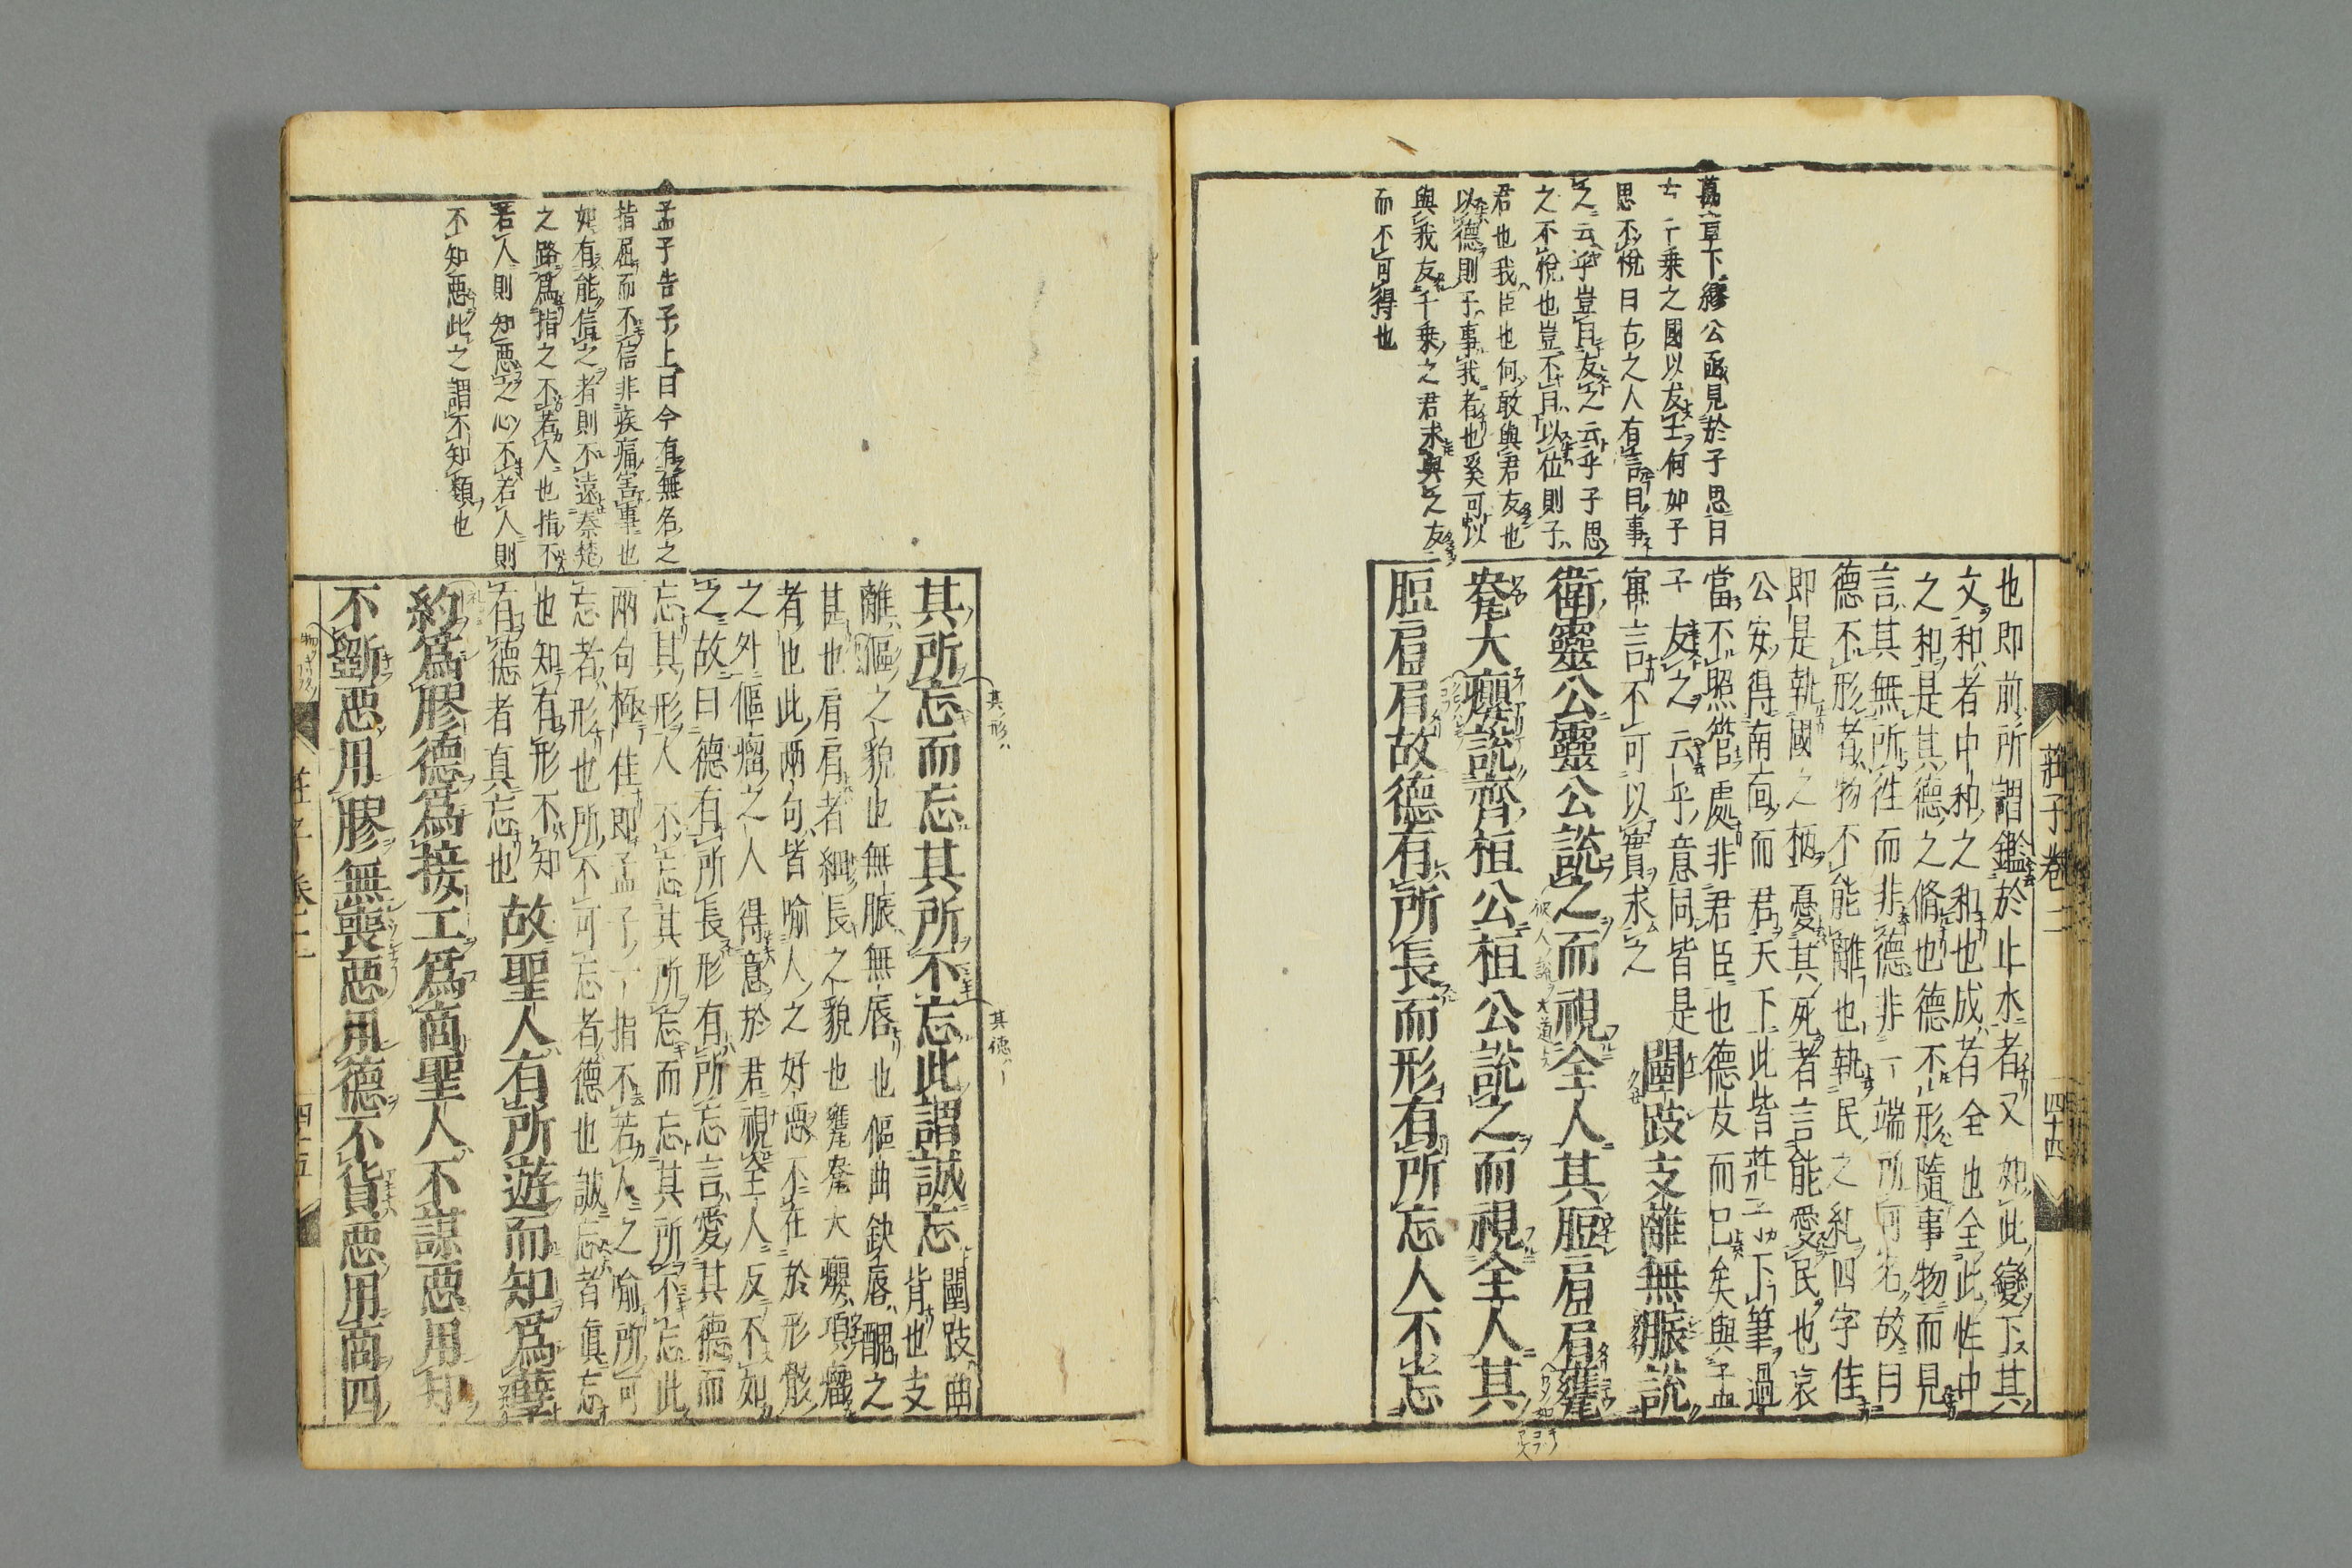 萬章下繆公亟見於子思曰
古千乗之國以友士何如子
思不悅曰古之人有言曰事
之云乎豈曰友之云乎子思
之不悅也豈不曰以位則子
君也我臣也何敢與君友也
以德則子事我者也奚可以
與我友千乗之君求與之友
而不可得也
莊子卷二
四十四
也即前所謂鑑於止水者又如此變下其
文和者中和之和也成者全也全此性中
之和是其德之脩也德不形隨事物而見
言其無所徃而非德非一端所可名故曰
德不形者物不能離也執民之紀四字佳
即是執國之柄憂其死者言能愛民也哀
公安得南面而君天下此皆莊子下筆過
當不照管處非君臣也德友而已矣與孟
子友之云乎意同皆是
寓言不可以實求之
闉跂支離無脤說
衛靈公靈公說之而視全人其脰肩肩甕
㼜大癭說齊桓公桓公說之而視全人其
脰肩肩故德有所長而形有所忘人不忘
孟子告子上曰今有無名之
指屈而不信非疾痛害事也
如有能信之者則不遠秦楚
之路爲指之不若人也指不
若人則知惡之心不若人則
不知惡此之謂不知類也
其所忘而忘其所不忘此謂誠忘
闉跂曲
背也支
離傴之貌也無脤無唇也傴曲缺唇醜之
甚也肩肩者細長之貌也甕㼜大癭項瘤
者也此兩句皆喻人之好惡不在於形骸
之外傴瘤之人得意於君視全人反不如
之故曰德有所長形有所忘言愛其德而
忘其形人不忘其所忘而忘其所不忘此
兩句極佳即孟子一指不若人之喻所可
忘者形也所不可忘者德也誠忘者眞忘
也知有形不知
有德者真忘也
故聖人有所遊而知爲孽
約爲膠德爲接工爲商聖人不謀惡用知
不斲惡用膠無喪惡用德不貨惡用商四
莊子卷二
四十五